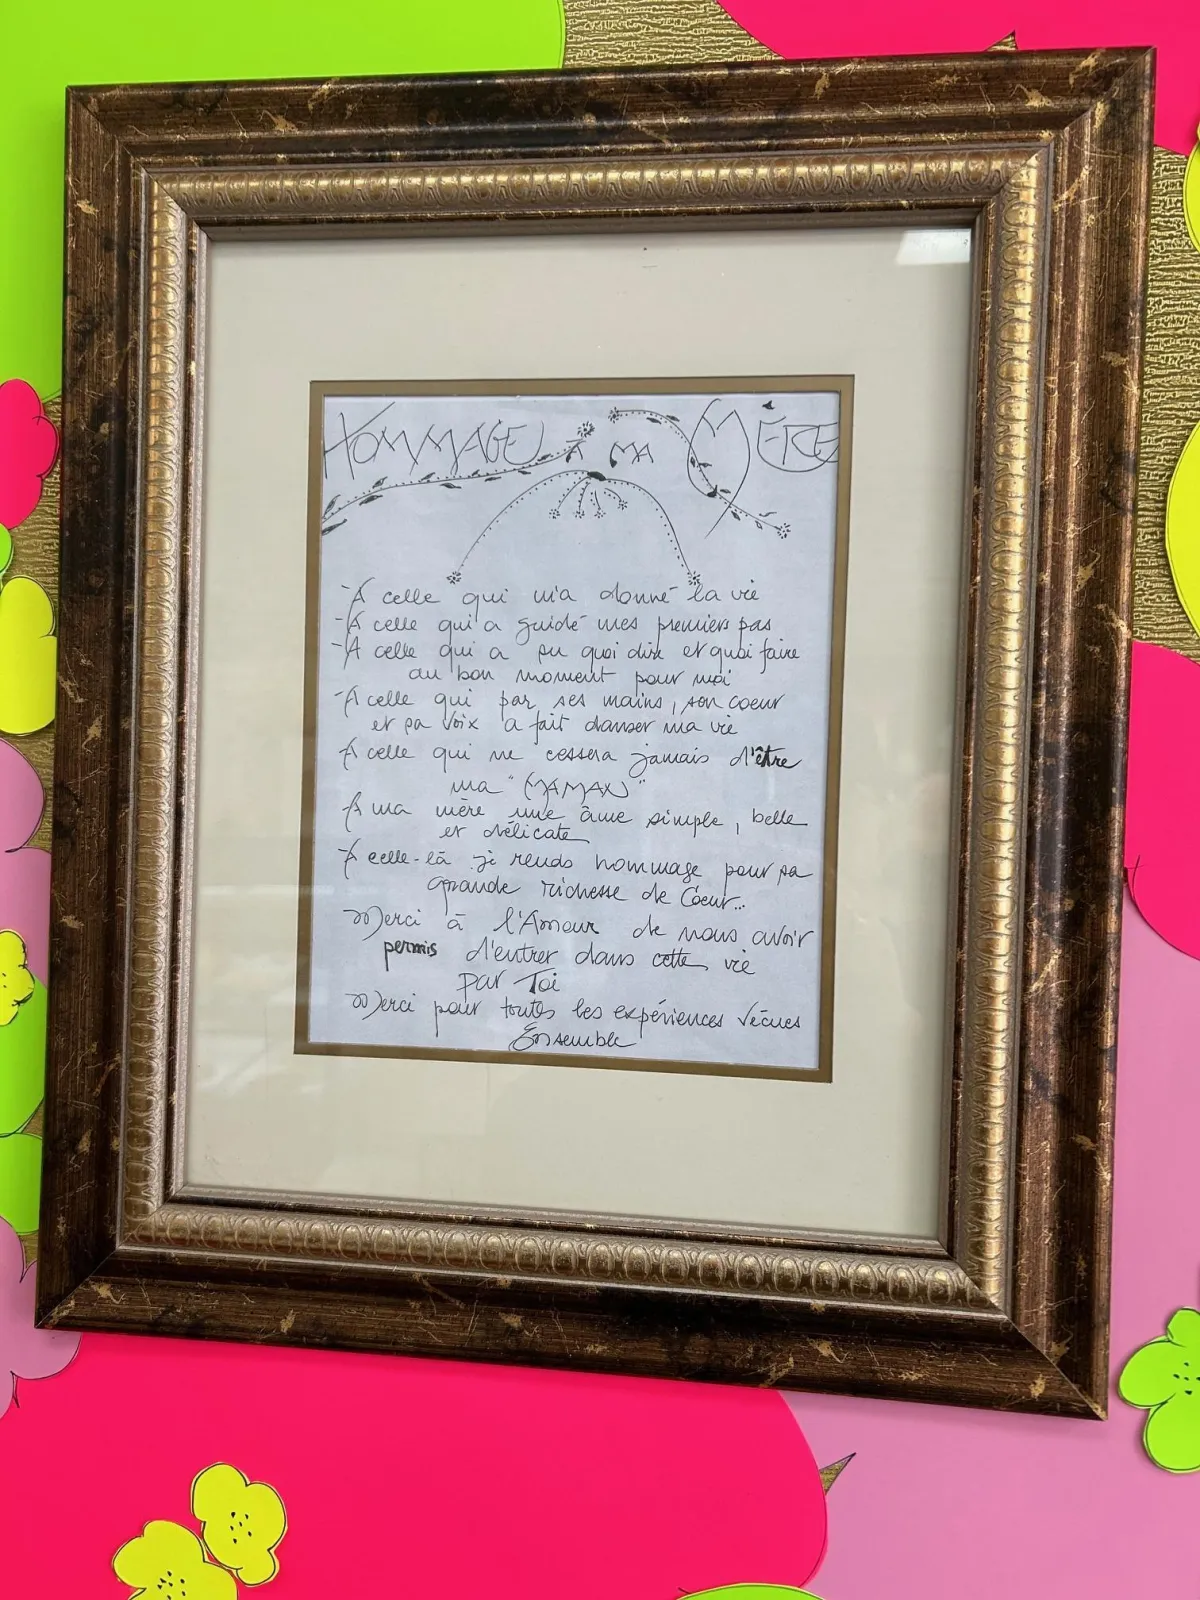 HOMMAGE À MA MÈRE
- À celle qui m'a donné la vie
- À celle qui a guidé mes premiers pas
- À celle qui a su quoi dire et quoi faire
au bon moment pour moi
- À celle qui par ses mains, son coeur
et sa voix a fait danser ma vie
À celle qui ne cessera jamais d'être
ma "MAMAN"
À ma mère une âme simple, belle
et délicate
À celle-là je rends hommage pour sa
grande richesse de Coeur...
Merci à l'Amour de nous avoir
permis d'entrer dans cette vie
par Toi
Merci pour toutes les expériences vécues
Ensemble